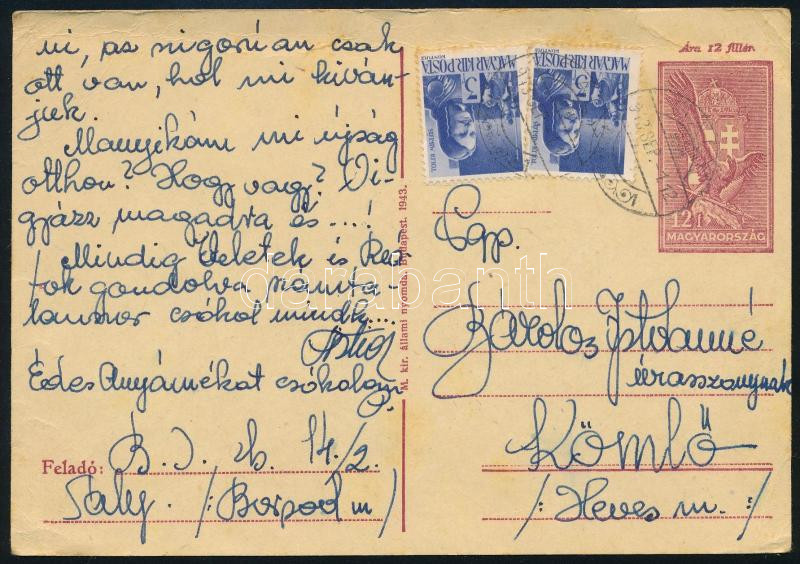 ni, as szigorúan csak
ott van, hol mi kíván-
juk.
Manyikám mi újság
otthon? Hogy vagy? Vi-
gyázz magadra és ...!
Mindig Veletek és Rá-
tok gondolva számta-
lanszor csókol mindk...
Édes Anyámékat csókolom
P.
Feladó: B. I. 14/2.
Saly. /: Borsod m
M. kir. állami nyomda, Budapest. 1943.
MAGYAR KIR. POSTA
3
TOLDI MIKLÓS
MAGYAR KIR. POSTA
3
Ára 12 fillér
12 f
MAGYARORSZÁG
Nagys.
Istvánné
úrasszonynak
Kömlő
/: Heves m. :/
darabanth